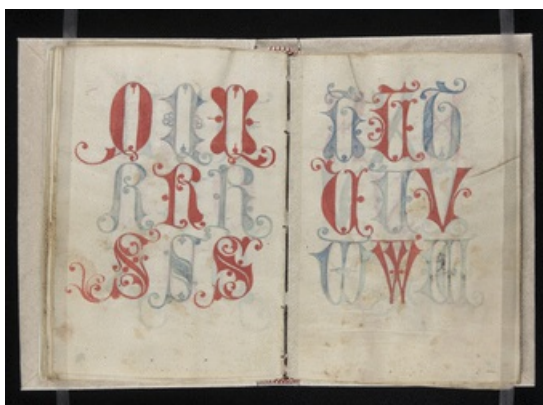 Q Q Q
R R R
S S S
T T T
U U V
W W W